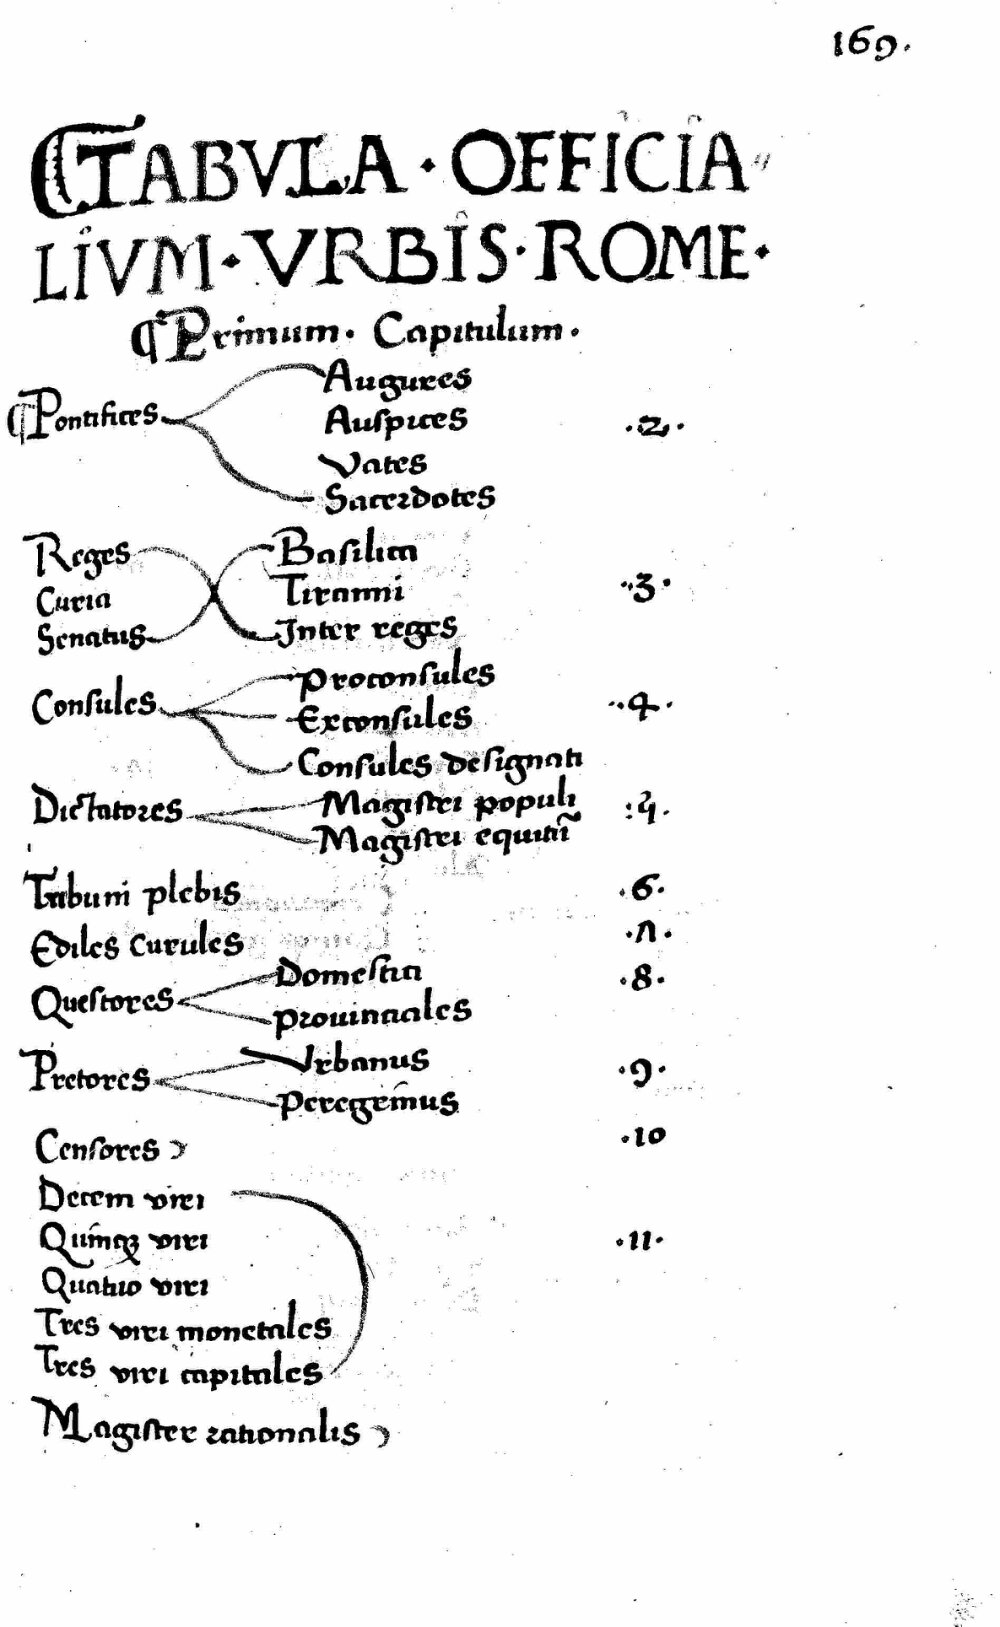 169.
¶TABVLA · OFFICIA〃
LIVM · VRBIS · ROME ·
¶Primum · Capitulum ·
¶Pontifices
Augures
Auſpices
Vates
Sacerdotes
·2·
Reges
Curia
Senatus
Baſilica
Tiranni
Inter reges
·3·
Conſules
Proconſules
Exconſules
Conſules deſignati
·4·
Dictatores
Magiſtri populi
Magiſtri equitū
Tribuni plebis
·6·
Ediles curules
·7·
Queſtores
Domeſtici
Prouinciales
·8·
Pretores
Vrbanus
Peregrinus
·9·
Cenſores
·10
Decem viri
Quinqꝫ viri
Quatuo viri
Tres viri monetales
Tres viri capitales
·11·
Magiſter rationalis